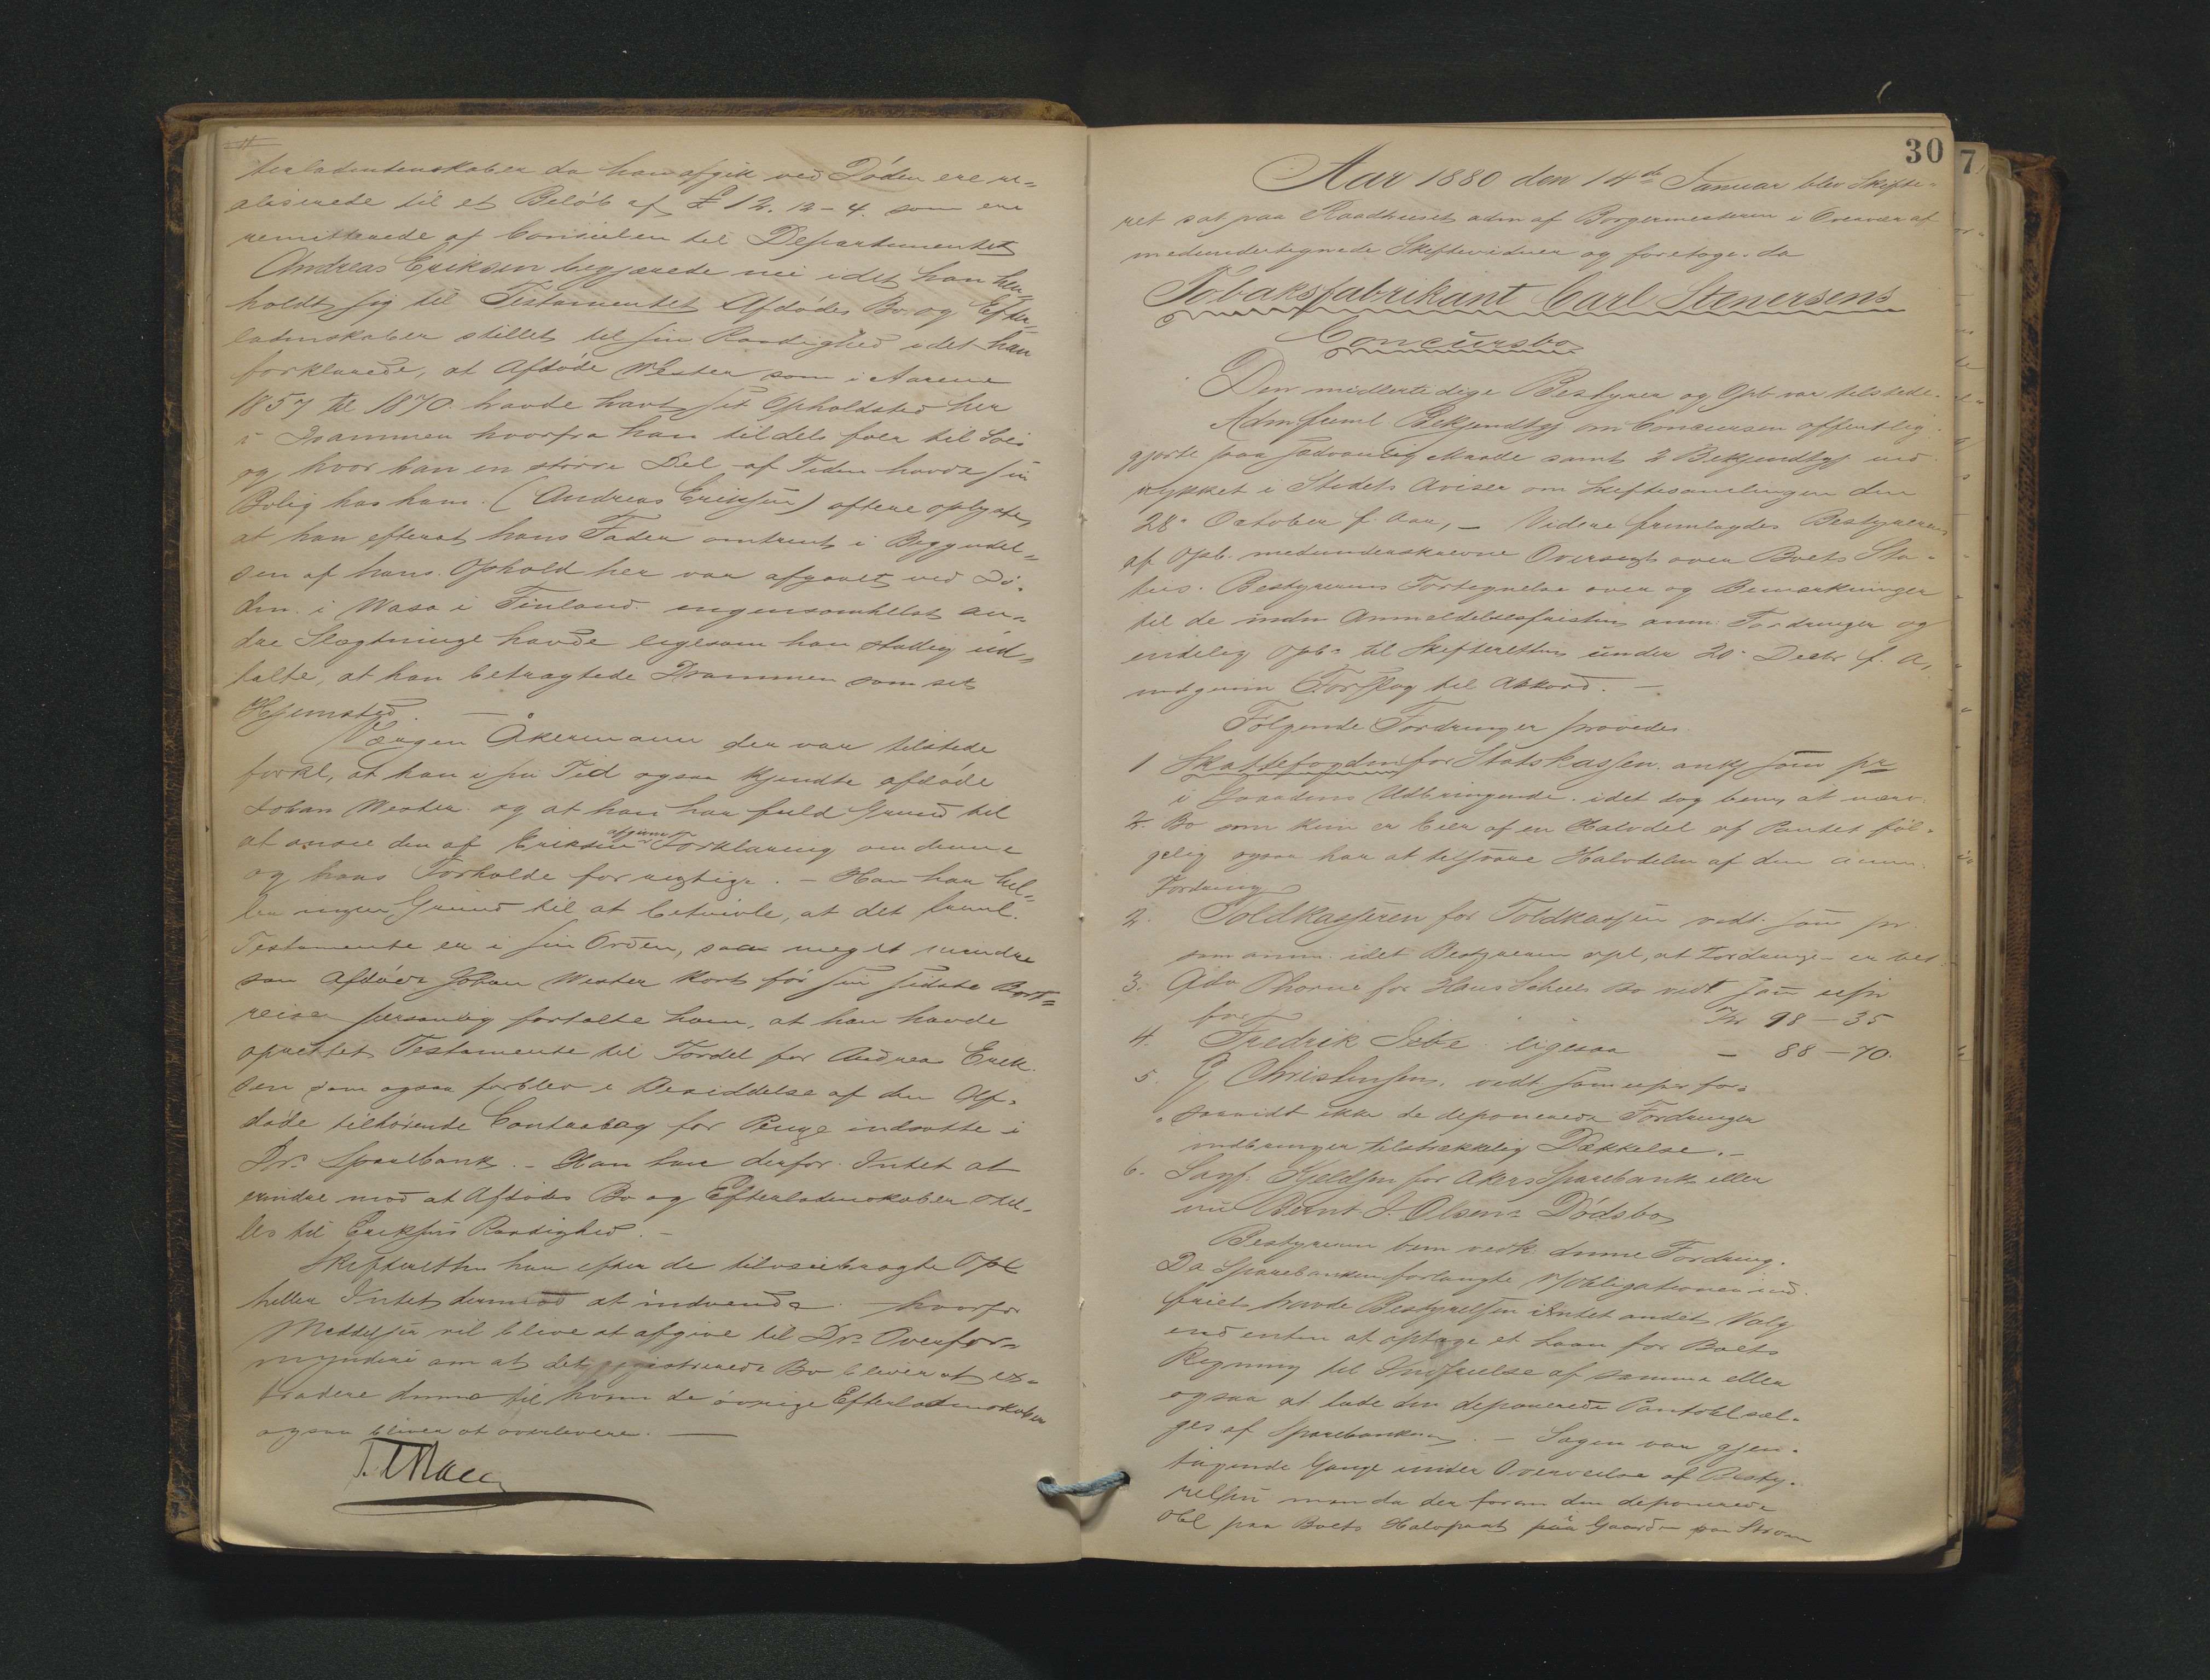 terladenskaber da han afgik ved Døden ere re-
aliserede til et Beløb af £ 12. 12-4. som ere
remitterede af Consulen til Departementet
Andreas Eriksen begjærede nu idet han hen-
holdt sig til Testamentet Afdødes Bo og Efter-
ladenskaber stillet til sin Raadighed idet han
forklarede, at Afdøde Wester som i Aarene
1857 til 1870 havde havt sit Opholdsted her
i Drammen hvorfra han tildels foer til Søes
og hvor han en større Del af Tiden havde sin
Bolig hos ham. (Andreas Eriksen) oftere oplyste,
at han efterat hans Fader omtrent i Begyndel-
sen af hans Ophold her var afgaaet ved Dø-
den i Wasa i Finland ingensomhelst an-
dre Slægtninge havde ligesom han stadig ud-
talte, at han betragtede Drammen som sit
Hjemsted. —
Værgen Åkermann der var tilstede
forkl, at han i sin Tid ogsaa kjendte afdøde
Johan Wester og at han har fuld Grund til
at ansee den af Eriksen afgivne Forklaring om denne
og hans Forholde for rigtige. – Han har hel-
ler ingen Grund til at betvivle, at det freml.
Testamente er i sin Orden, saa meget mindre
som Afdøde Johan Wester kort før sin sidste Bort-
reise personlig fortalte ham, at han havde
oprettet Testamente til Fordel for Andreas Erik-
sen som ogsaa forblev i Besiddelse af den Af-
døde tilhørende Contrabog for Penge indsatte i
Drs Sparebank. – Han har derfor Intet at
erindre mod at Afdødes Bo og Efterladenskaber stil-
les til Eriksens Raadighed. –
Skifteretten har efter de tilveiebragte Opl
heller Intet derimod at indvende hvorfor
Meddelse vil blive at afgive til Drs Overfor-
mynderi om at det registrerede Bo bliver at ex-
tradere denne til hvem de øvrige Efterladenskaber
ogsaa bliver at overlevere. —
30
7
Aar 1880 den 14de Januar blev Skifte-
ret sat paa Raadhuset adm af Borgermesteren i Overvær af
medundertegnede Skiftevidner og foretoges da
Tobaksfabrikant Carl Stenersens
Concursbo
Den midlertidige Bestyrer og Opb var tilstede.
Adm freml Bekjendtgj om Concursen offentlig-
gjorte paa sædvanlig Maade samt 2 Bekjendtgj ind-
rykket i Stadets Aviser om Skiftesamlingen den
28de October f. Aar, – Videre fremlagdes Bestyrerens
af Opb. medunderskrevne Oversigt over Boets Sta-
tus. Bestyrerens Fortegnelse over og Bemærkninger
til de inden Anmeldelsesfristen anm Fordringer og
endelig Opbs til Skifteretten under 20de Decbr f. A,
indgivne Forslag til Akkord. —
Følgende Fordringer prøvedes
1 Skattefogden for Statskassen. ankj som pr
i Gaardens Udbringende. idet dog bem, at nærv.
Bo som kun er Eier af en Halvdel af Pantet føl-
gelig ogsaa har at tilsvare Halvdelen af den anm.
Fordring
2. Toldkasseren for Toldkassen vedt. som pr.
som anm. idet Bestyreren opl, at Fordringen er bet
3. Adv Thorne for Hans Scheels Bo vedt som upr
for Kr 98–35
4. Fredrik Sebe ligesaa – 88–70.
5. G Christensen, vedt som upr for-
saavidt ikke de deponerede Fordringer
indbringer tilstrækkelig Dækkelse. –
6. Sagf. Kjeldsen for Akers Sparebank eller
nu Bernt J. Olsens Dødsbo
Bestyreren bem vedk. denne Fordring.
Da Sparebanken forlangte Obligationen ind-
friet havde Bestyrelsen intet andet Valg
end enten at optage et Laan for Boets
Regning til Indfrielse af samme eller
ogsaa at lade den deponerede Pantobl sæl-
ges af Sparebanken. – Sagen var gjen-
tagende Gange under Overveielse af Besty-
relsen men da der foran den deponerede
Obl paa Boets Halvpart paa Gaarden paa Strøm